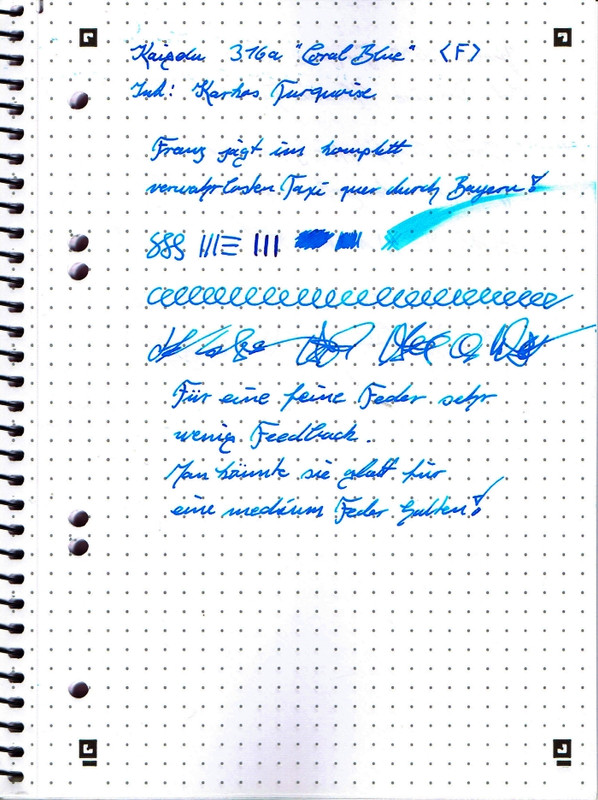 Kaigelu 316a "Coral Blue" <F>
Ink: Karkos Turquoise
Franz jagt im komplett
verwahrlosten Taxi quer durch Bayern!
Für eine feine Feder sehr
wenig Feedback.
Man könnte sie glatt für
eine medium Feder halten!